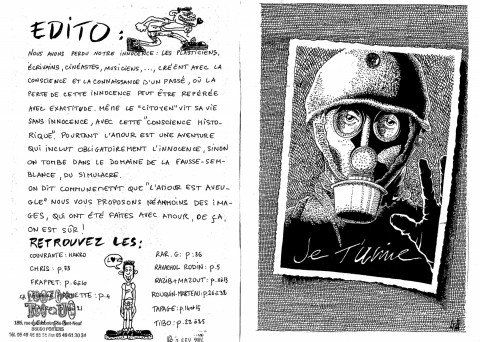 EDITO:
NOUS AVONS PERDU NOTRE INNOCENCE : LES PLASTICIENS,
ÉCRIVAINS, CINÉASTES, MUSICIENS, ..., CRÉENT AVEC LA
CONSCIENCE ET LA CONNAISSANCE D'UN PASSÉ, OÙ LA
PERTE DE CETTE INNOCENCE PEUT ÊTRE REPÉRÉE
AVEC EXACTITUDE. MÊME LE "CITOYEN" VIT SA VIE
SANS INNOCENCE, AVEC CETTE "CONSCIENCE HISTO-
RIQUE". POURTANT L'AMOUR EST UNE AVENTURE
QUI INCLUT OBLIGATOIREMENT L'INNOCENCE, SINON
ON TOMBE DANS LE DOMAINE DE LA FAUSSE-SEM-
BLANCE, DU SIMULACRE.
ON DIT COMMUNEMENT QUE "L'AMOUR EST AVEU-
GLE" NOUS VOUS PROPOSONS NÉANMOINS DES IMA-
GES, QUI ONT ÉTÉ FAITES AVEC AMOUR, DE ÇA,
ON EST SÛR !
RETROUVEZ LES:
COUVRANTE: HAKRO
CHRIS:
FRAPPET:
LOVE
RAR.G: p:36
RAVACHOL RODIN: p.5
RAZIB & MAZOUT:
ROUQUIN-MARTEAU:
TAPAGE:
TIBO:
86000 POITIERS
Je T'aime